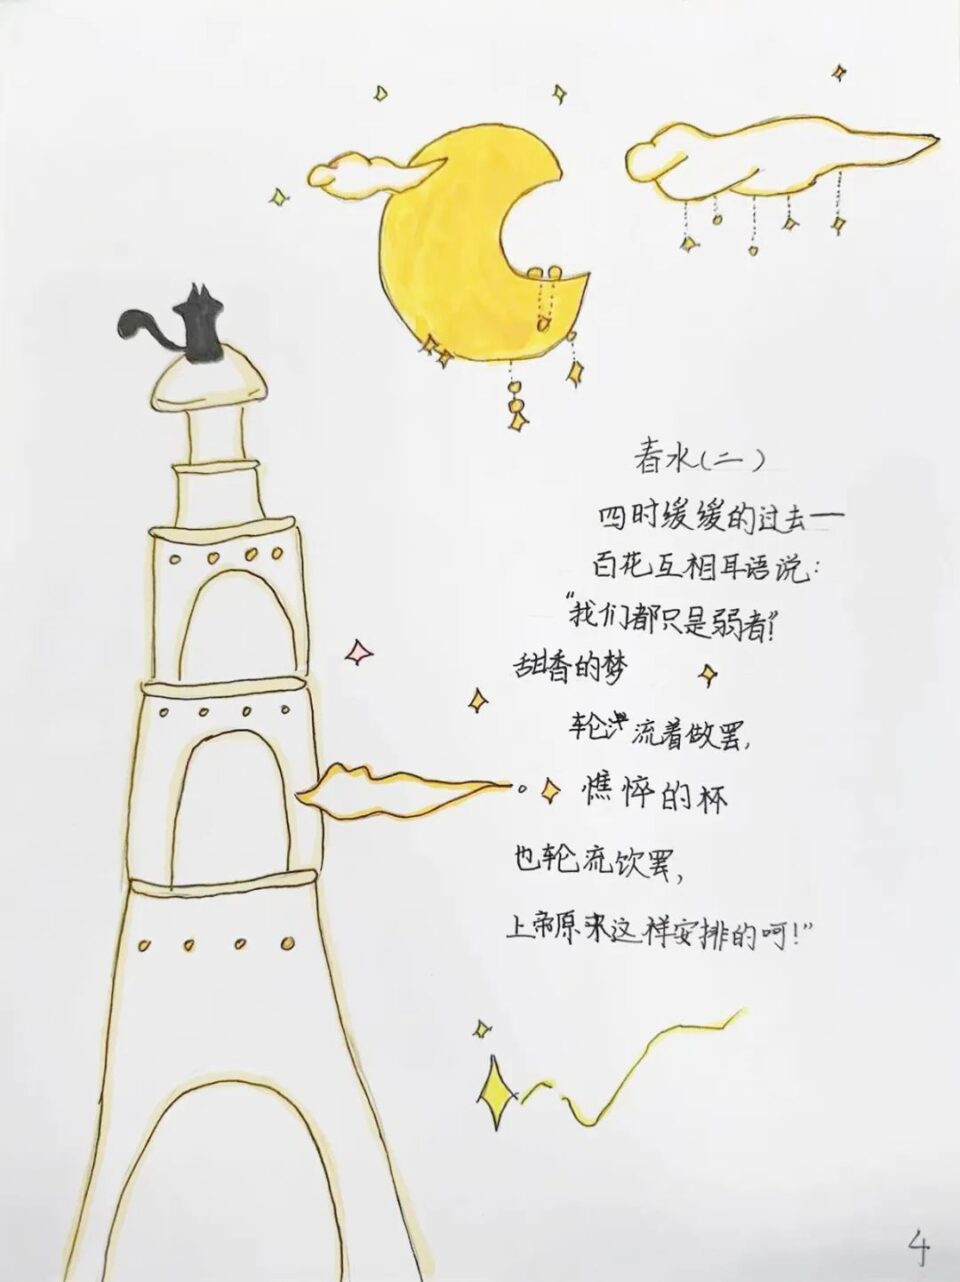 春水（二）
四时缓缓的过去—
百花互相耳语说：
“我们都只是弱者！”
甜香的梦
轮流着做罢，
憔悴的杯
也轮流饮罢，
上帝原来这样安排的呵！”
4